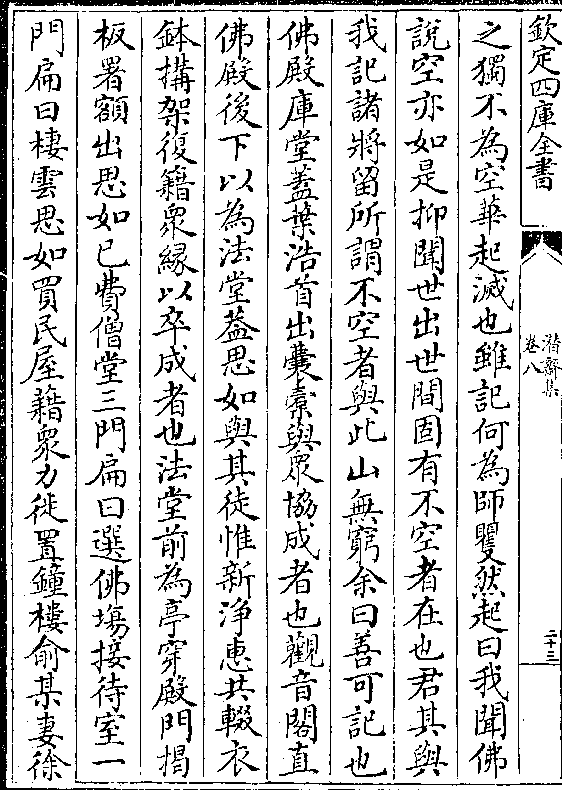 欽定四庫全書
潛齋集
卷八
二十三
之獨不為空華起滅也雖記何為師矍然起曰我聞佛
說空亦如是抑聞世出世間固有不空者在也君其與
我記諸將留所謂不空者與此山無窮余曰善可記也
佛殿庫堂蓋葉浩首出囊槖與眾協成者也觀音閣直
佛殿後下以為法堂葢思如與其徒惟新淨惠共輟衣
鉢搆架復籍衆縁以卒成者也法堂前為亭穿殿門揭
板署額出思如已費僧堂三門扁曰選佛塲接待室一
門扁曰棲雲思如買民屋藉衆力徙置鐘樓俞某妻徐